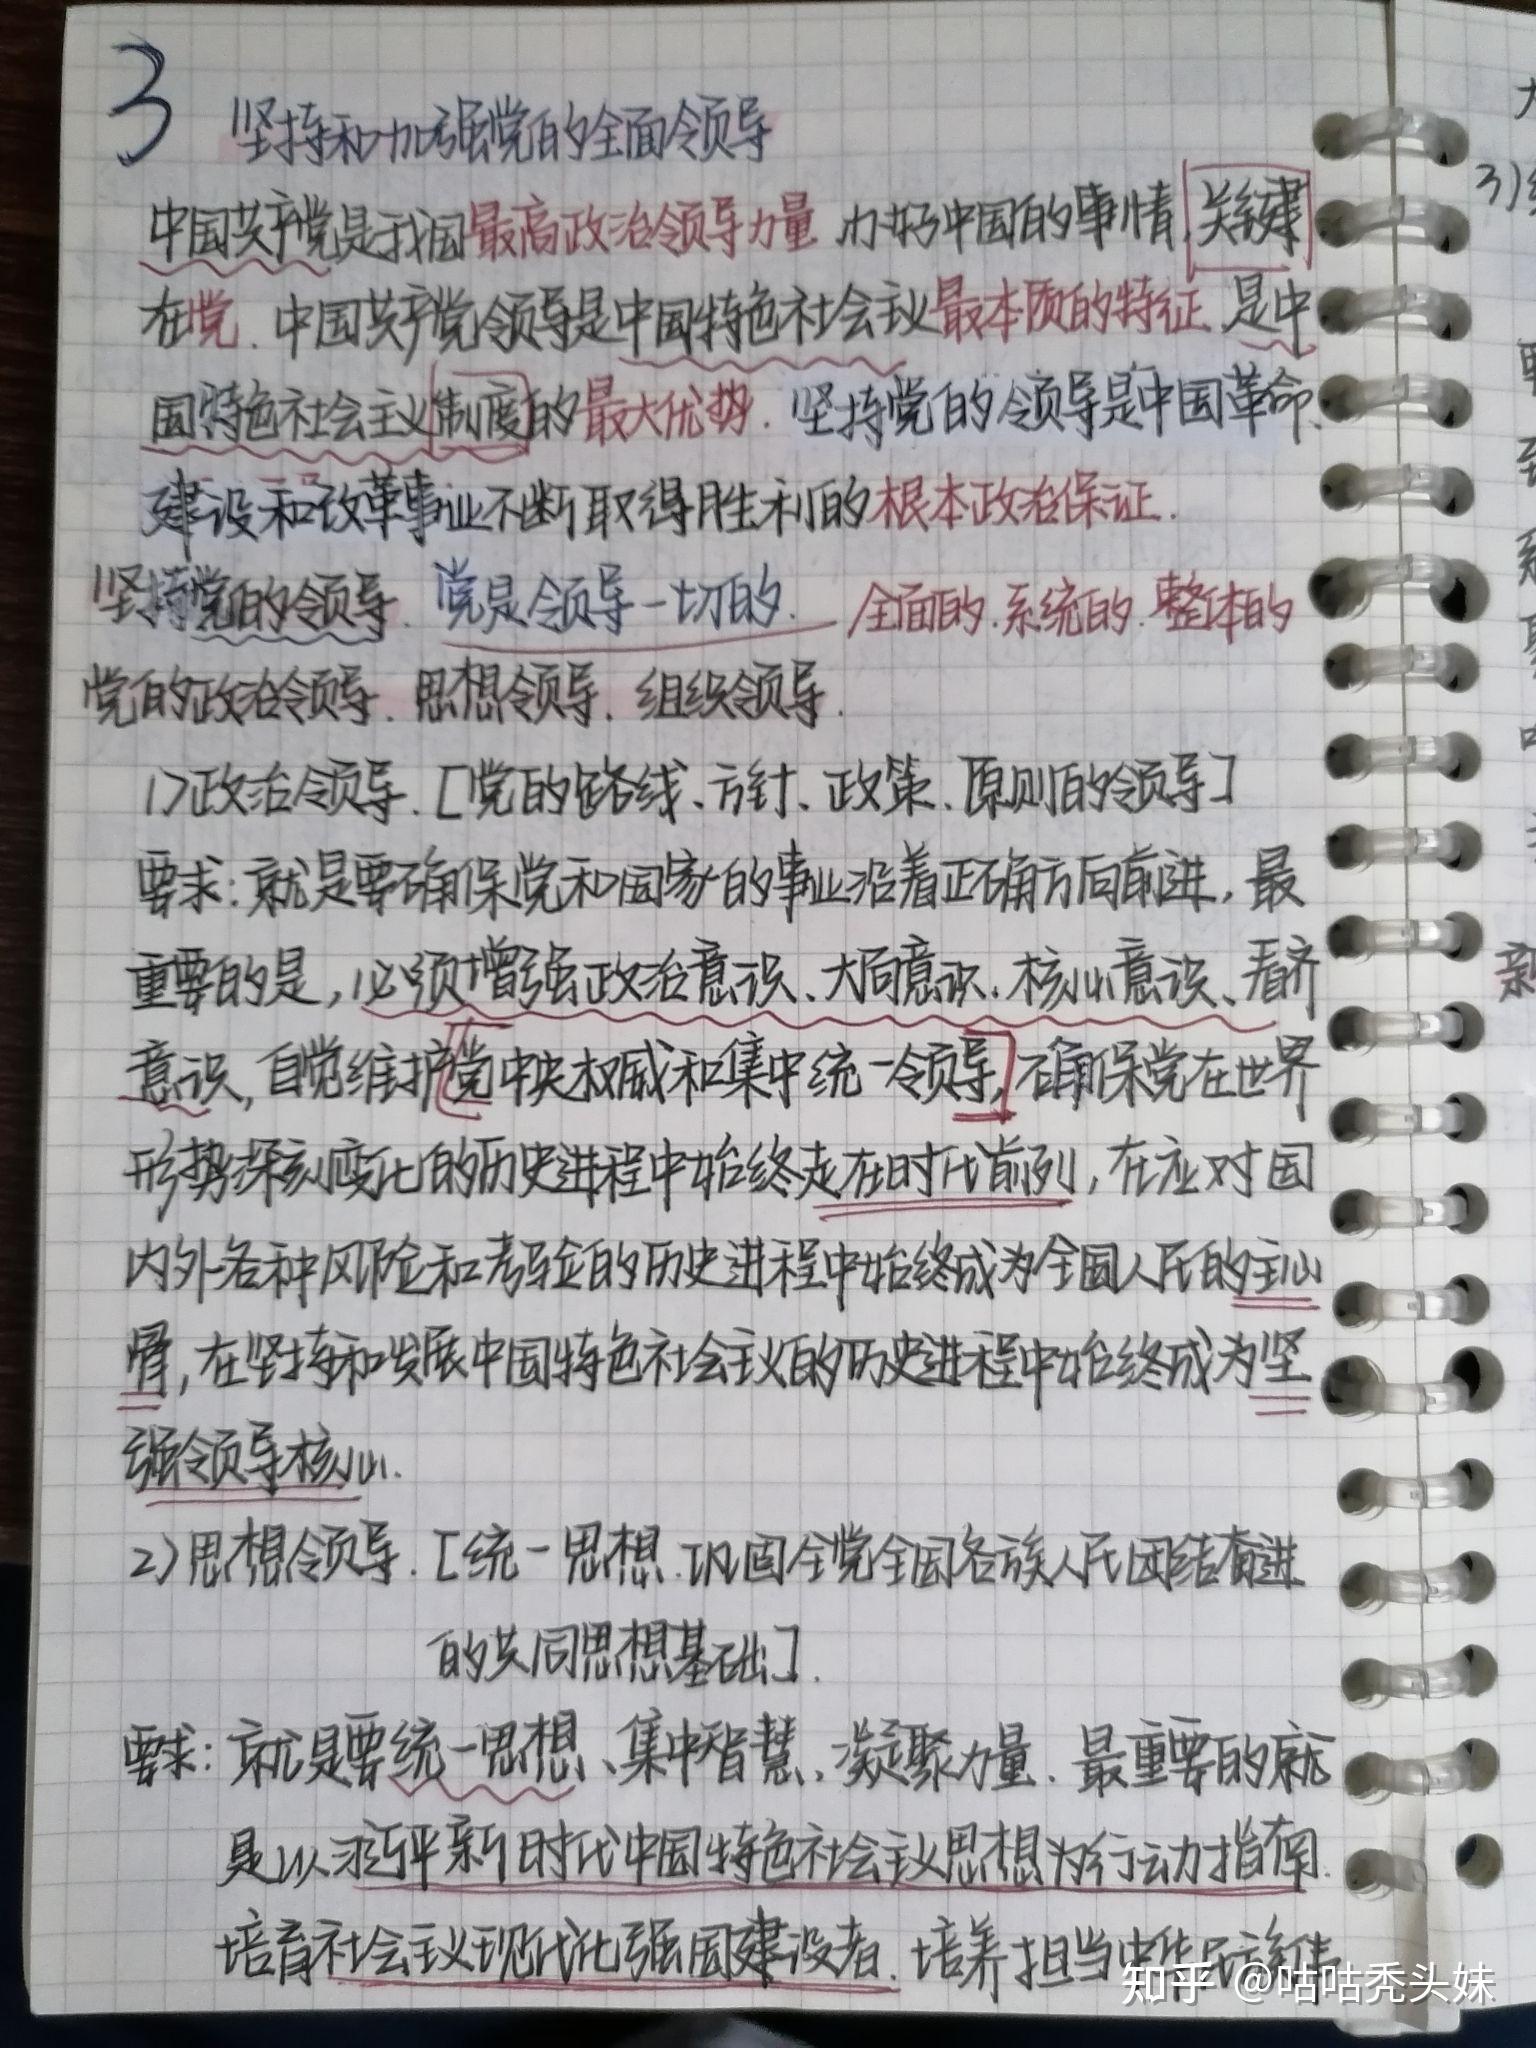 3 坚持和加强党的全面领导
中国共产党是我国最高政治领导力量.办好中国的事情,关键
在党.中国共产党领导是中国特色社会主义最本质的特征.是中
国特色社会主义制度的最大优势.坚持党的领导是中国革命、
建设和改革事业不断取得胜利的根本政治保证.
坚持党的领导.党是领导一切的.全面的.系统的.整体的
党的政治领导.思想领导.组织领导.
1)政治领导.[党的路线、方针、政策、原则的领导]
要求:就是要确保党和国家的事业沿着正确方向前进,最
重要的是,必须增强政治意识、大局意识、核心意识、看齐
意识,自觉维护党中央权威和集中统一领导,确保党在世界
形势深刻变化的历史进程中始终走在时代前列,在应对国
内外各种风险和考验的历史进程中始终成为全国人民的主心
骨,在坚持和发展中国特色社会主义的历史进程中始终成为坚
强领导核心.
2)思想领导.[统一思想.巩固全党全国各族人民团结奋进
的共同思想基础].
要求:就是要统一思想、集中智慧、凝聚力量.最重要的就
是以习近平新时代中国特色社会主义思想为行动指南.
培育社会主义现代化强国建设者.培养担当中华民族
知乎 @咕咕秃头妹
3)
亲